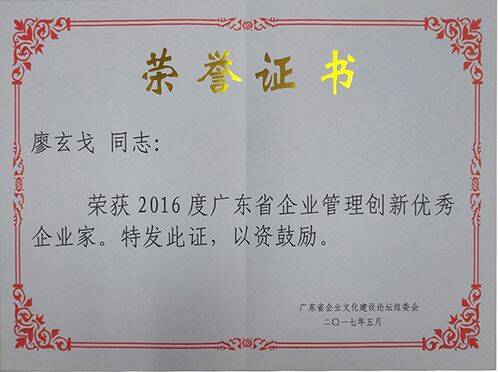 荣誉证书
廖玄戈 同志：
荣获2016度广东省企业管理创新优秀
企业家。特发此证，以资鼓励。
广东省企业文化建设论坛组委会
二〇一七年五月